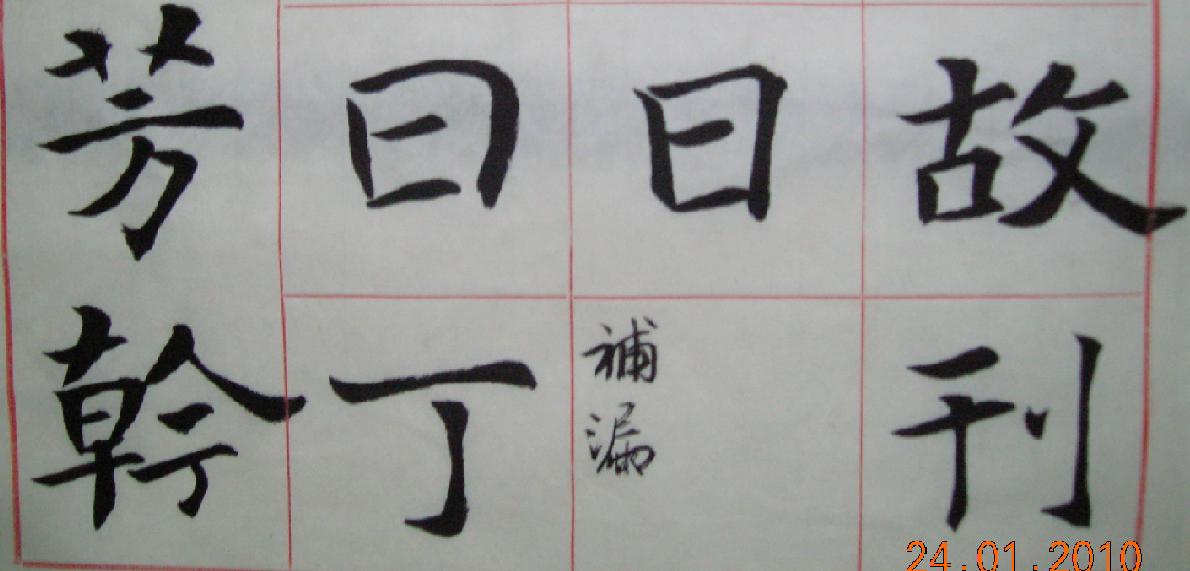 故刊
日
補漏
曰丁
芳幹
24.01.2010